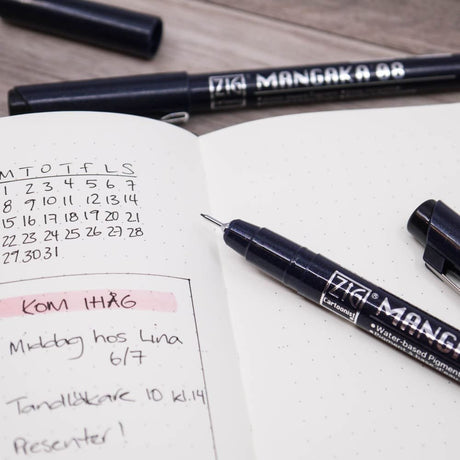 ZIG MANGAKA 08
M T O T F L S
1 2 3 4 5 6 7
8 9 10 11 12 13 14
15 16 17 18 19 20 21
22 23 24 25 26 27 28
29 30 31
KOM IHÅG
Middag hos Lina
6/7
Tandläkare 10 kl.14
Presenter!
ZIG ® MANGAKA
Cartoonist
•Water-based Pigment